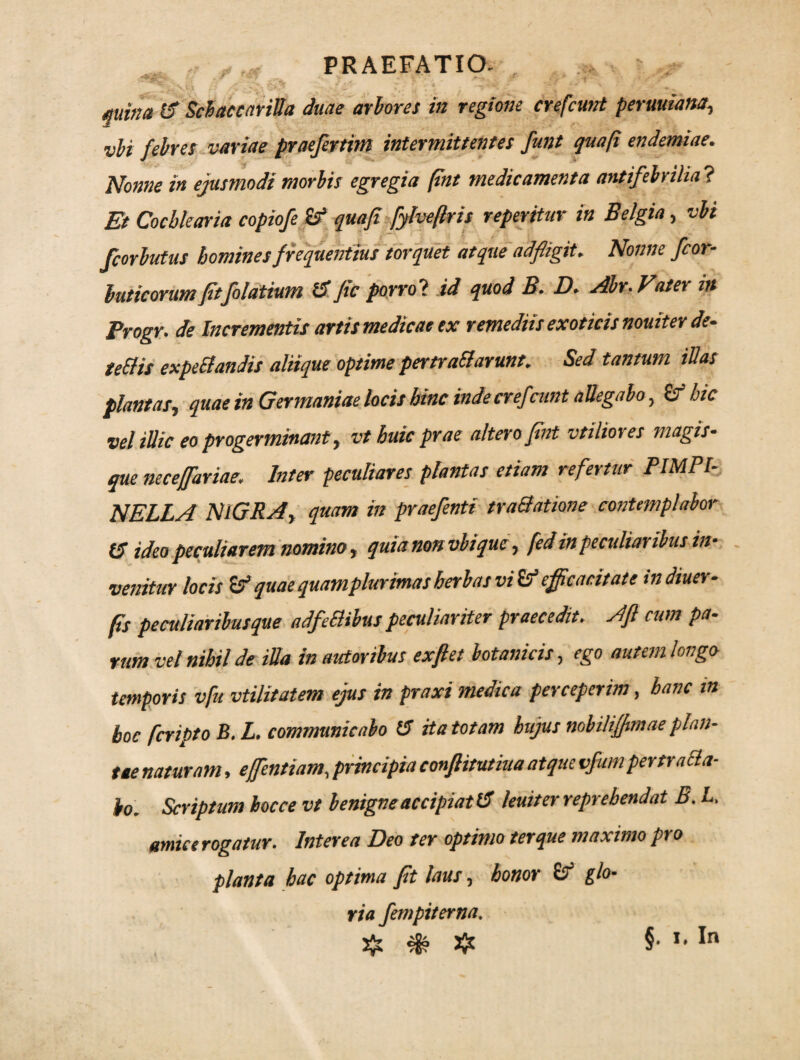 PRAEFATIO.
quina & Schaccarilla duae arbores in regione creſcunt peruuiana,
vbi febres variae praeſertim intermittentes ſunt quaſi endemiae.
Nonne in ejusmodi morbis egregia ſint medicamenta antifebrilia?
Et Cochlearia copioſe & quaſi ſylveſtris reperitur in Belgia, vbi
ſcorbutus homines frequentius torquet atque adfligit. Nonne ſcor-
buticorum ſit ſolatium & ſic porro? id quod B. D. Abr. Vater in
Progr. de Incrementis artis medicae ex remediis exoticis nouiter de-
tectis expectandis aliique optime pertractarunt. Sed tantum illas
plantas, quae in Germaniae locis hinc inde creſcunt allegabo, & hic
vel illic eo progerminant, vt huic prae altero ſint vtiliores magis-
que neceſſariae. Inter peculiares plantas etiam refertur PIMPI-
NELLA NIGRA, quam in praeſenti tractatione contemplabor
& ideo peculiarem nomino, quia non vbique, ſed in peculiaribus in-
venitur locis & quae quamplurimas herbas vi & efficacitate in diuer-
ſis peculiaribusque adfectibus peculiariter praecedit. Aſt cum pa-
rum vel nihil de illa in autoribus exſtet botanicis, ego autem longo
temporis vſu vtilitatem ejus in praxi medica perceperim, hanc in
hoc ſcripto B. L. communicabo & ita totam hujus nobiliſſimae plan-
tae naturam, eſſentiam, principia conſtitutiua atque vſum pertracta-
bo. Scriptum hocce vt benigne accipiat & leuiter reprehendat B. L.
amice rogatur. Interea Deo ter optimo terque maximo pro
planta hac optima ſit laus, honor & glo-
ria ſempiterna.
§. 1. In